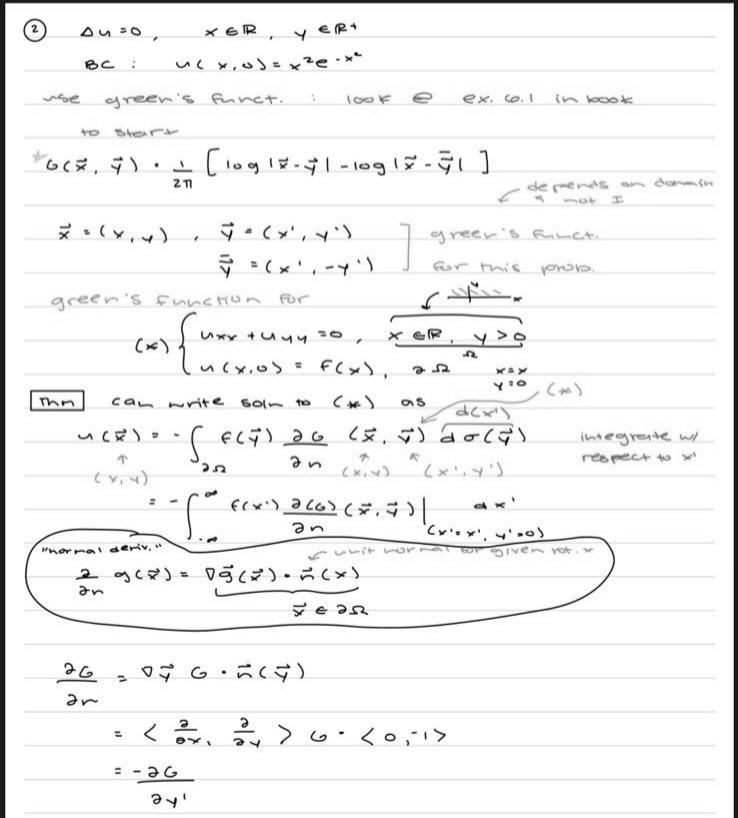 ② Δu = 0, x ∈ ℝ, y ∈ ℝ+
BC : u(x,0) = x²e^-x²
use green's funct. : look @ ex. 6.1 in book
to start
* G(x⃗, y⃗) = 1/2π [log|x⃗-y⃗| - log|x⃗-ȳ⃗|]
depends on domain
& not I
x⃗ = (x,y), y⃗ = (x', y')
ȳ⃗ = (x', -y')
] green's funct.
for this prob.
green's function for
(*) { uxx + uyy = 0, x ∈ ℝ, y > 0
Ω
u(x,0) = f(x), ∂Ω
x=x
y=0
Thm can write soln to (*) as
(*)
d(x')
u(x⃗) = - ∫∂Ω f(y⃗) ∂G/∂n (x⃗, y⃗) dσ(y⃗)
integrate w/
respect to x'
(x,y) (x,y) (x',y')
= - ∫-∞^∞ f(x') ∂(G)/∂n (x⃗, y⃗)| (x'=x', y'=0) dx'
"normal deriv."
unit normal for given pt. x
∂/∂n g(x⃗) = ∇g⃗(x⃗) · n⃗(x)
x⃗ ∈ ∂Ω
∂G/∂n = ∇y⃗ G · n⃗(y⃗)
= < ∂/∂x, ∂/∂y > G · <0,-1>
= -∂G/∂y'